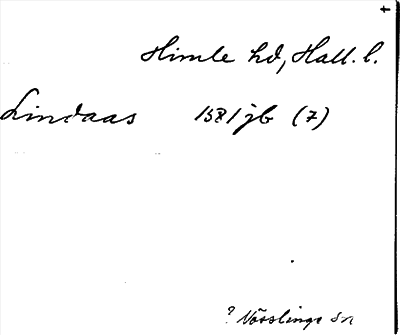 Himle hd, Hall. l.
Lindaas 1581 jb (7)
? Nösslinge sn